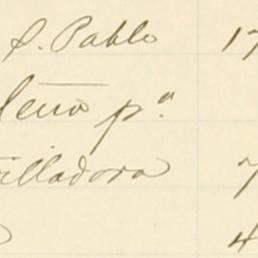 S. Pablo 17
leña pª
trilladora 7
4